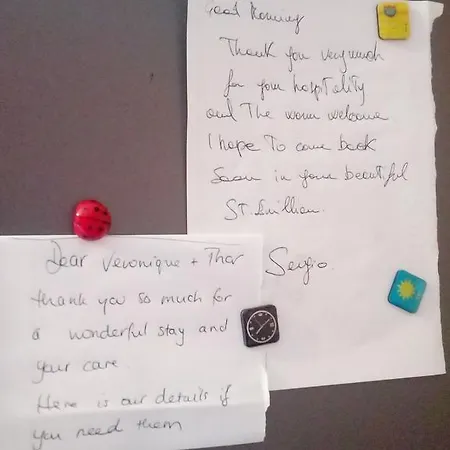 Good Morning
Thank you very much
for your hospitality
and The warm welcome
I hope To come back
Soon in your beautiful
ST. Emillion.
Sergio
Dear Veronique + Thor
thank you so much for
a wonderful stay and
your care.
Here is our details if
you need them